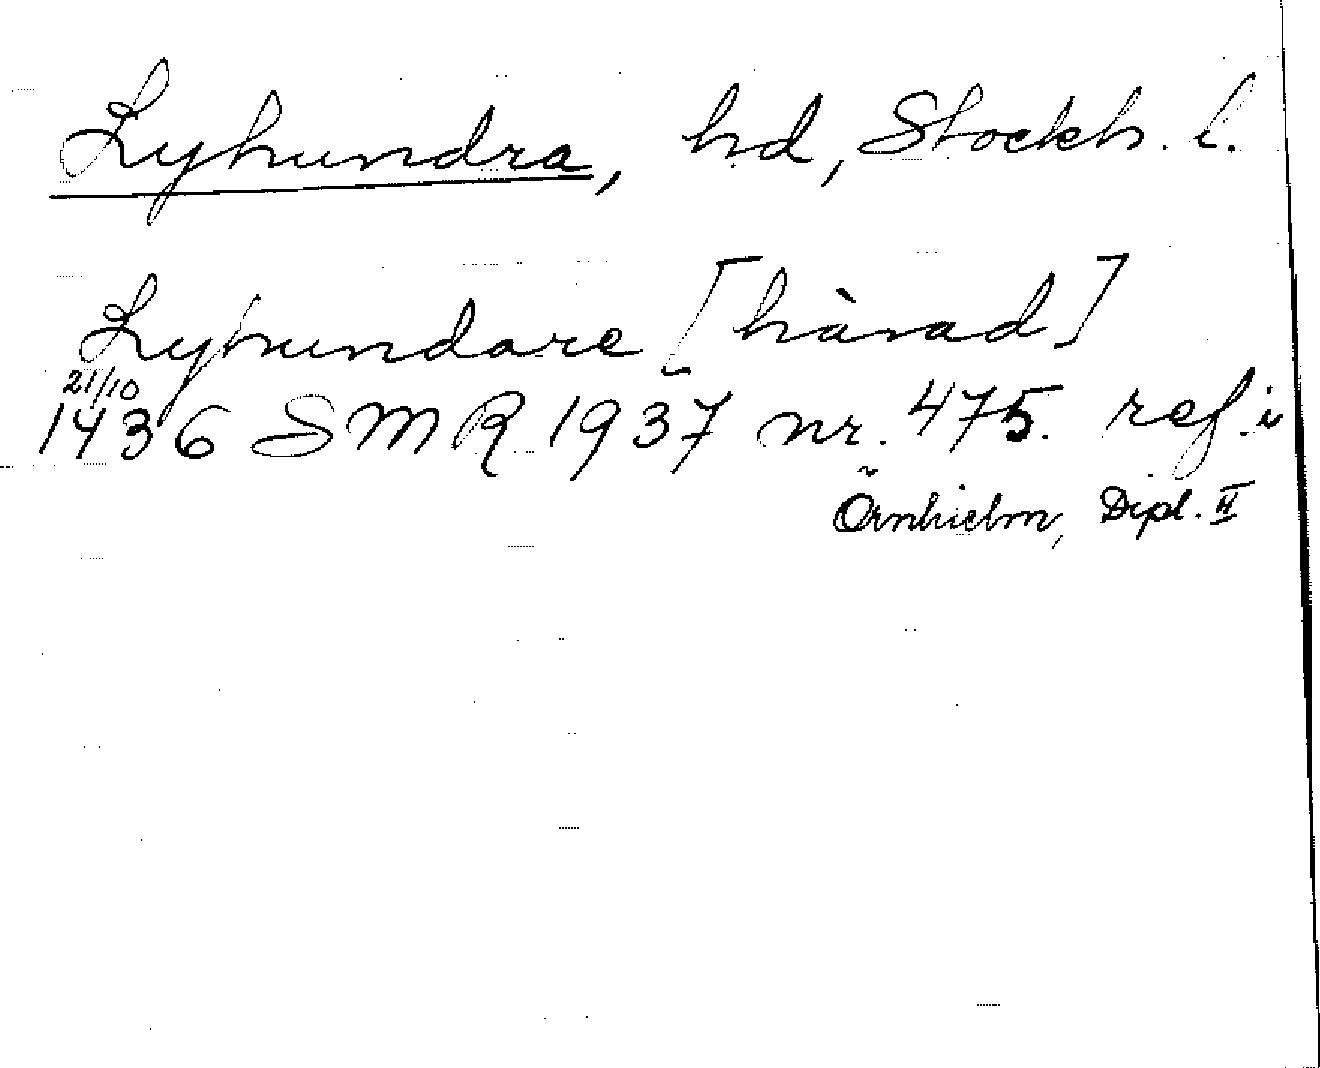 Lyhundra, hd, Stockh. l.
Lyhundare [hàrad]
21/10
1436 SMR 1937 nr. 475. ref. i
Örnhielm, Dipl. II